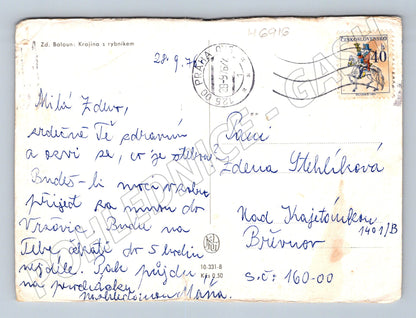 Zd. Baloun: Krajina s rybníkem
46916
28.9.76
PRAHA
ČESKOSLOVENSKO
40
Milá Zdeno,
srdečně Tě zdravím
a ozvi se, co je
Budeš-li moci v sobotu
přijet za mnou do
Vršovic. Budu na
Tebe čekati do 5 hodin
nejdéle. Pak půjdu již
na procházku.
Máňa.
Paní
Zdena Stehlíková
Nad Kajetánkou
1401/B
Břevnov
s.č: 160-00
10-331-8
Kčs 0,50
POHLEDNICE - GASH